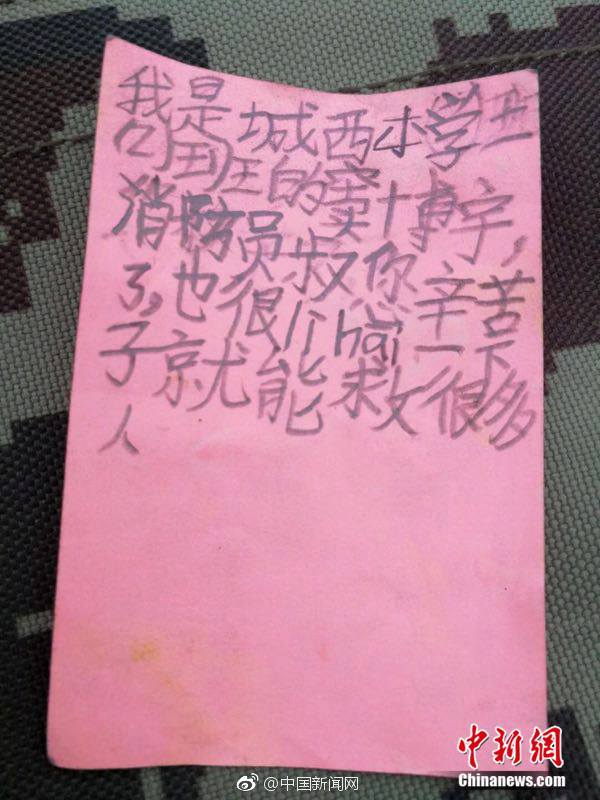 我是城西小学
班的窦博宇，
消防员叔你辛苦
了，也很厉hai一下
子就能救很多
人
中新网
Chinanews.com
@中国新闻网